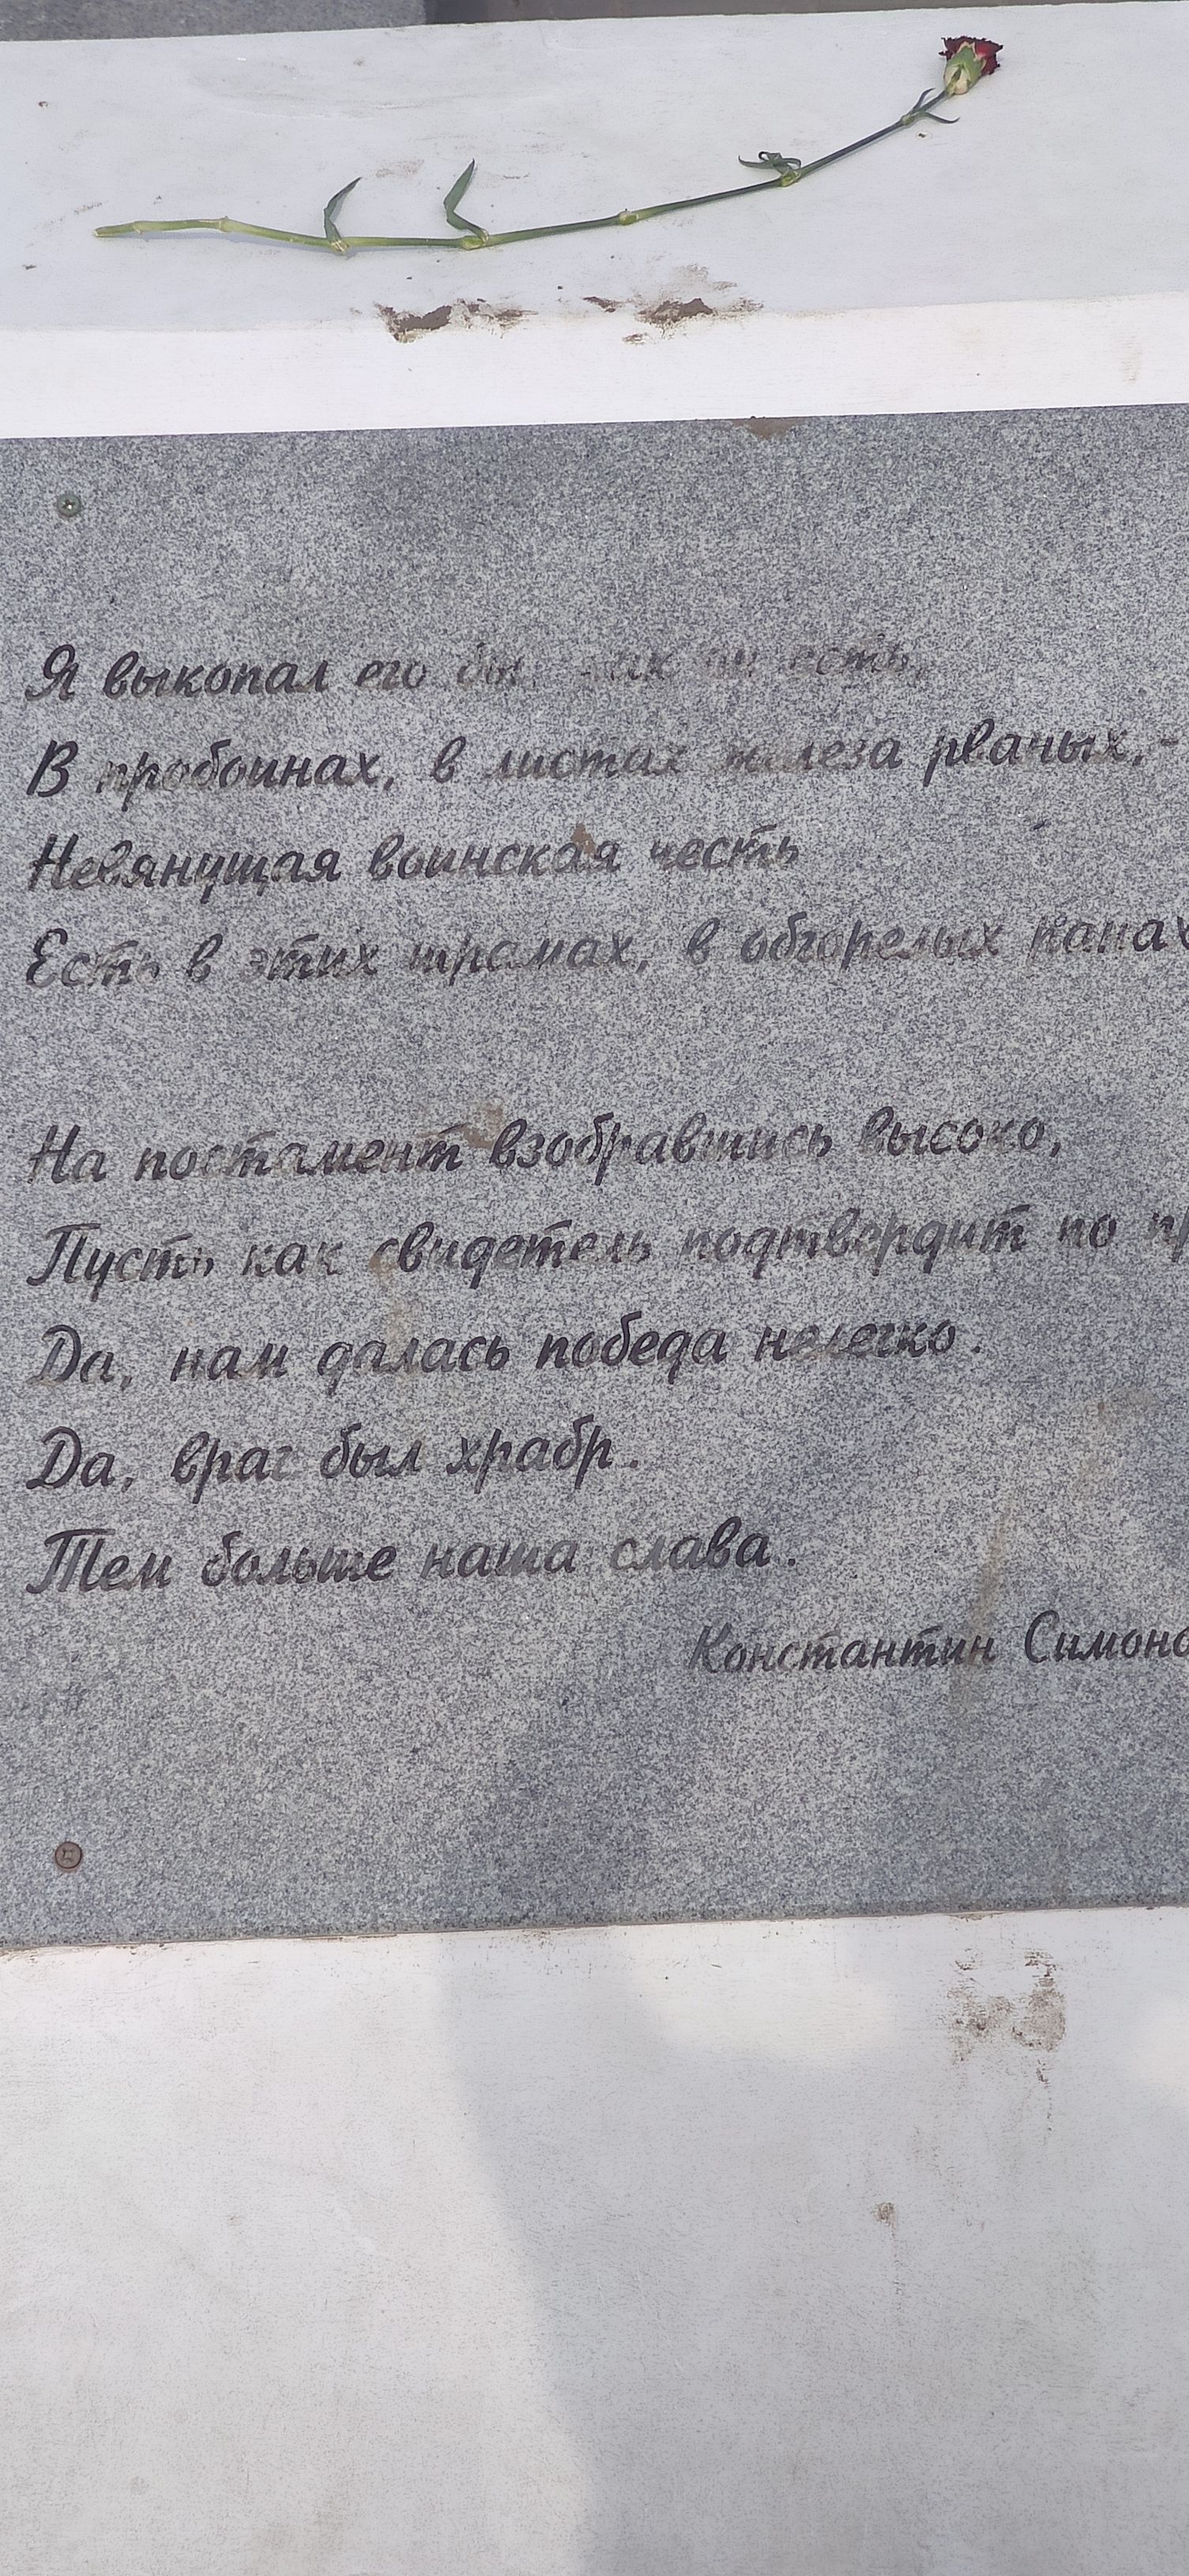 Я выкопал его бы как он есть,
В пробоинах, в листах железа рваных, -
Невянущая воинская честь
Есть в этих шрамах, в обгорелых ранах
На постамент взобравшись высоко,
Пусть как свидетель подтвердит по
Да, нам далась победа нелегко.
Да, враг был храбр.
Тем больше наша слава.
Константин